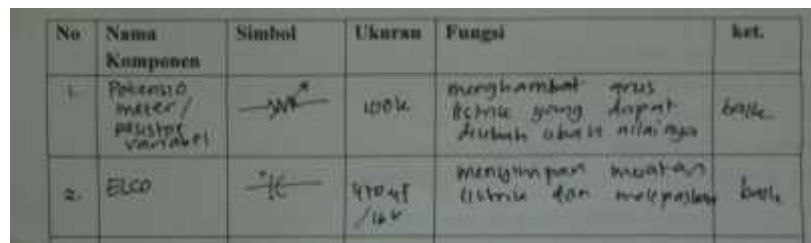 No Nama Komponen Simbol Ukuran Fungsi ket.
1. Potensio meter / resistor variabel 100k menghambat arus listrik yang dapat diubah ubah nilainya baik
2. ELCO 470 uf /16V menyimpan muatan listrik dan melepaskan baik